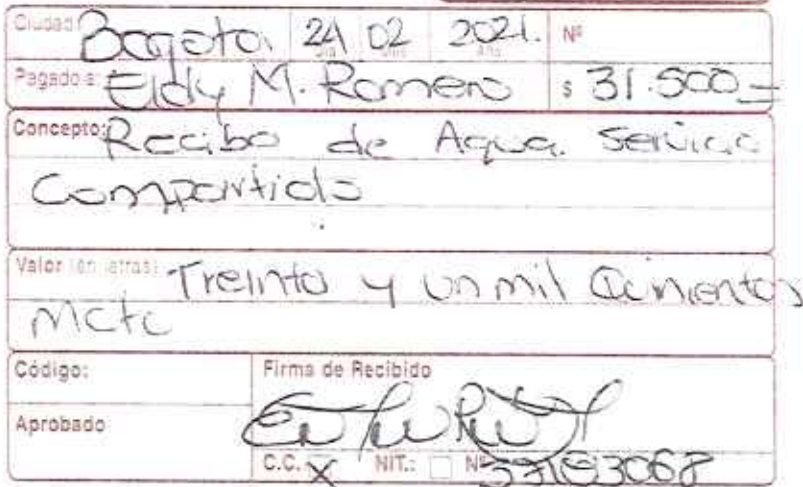 Ciudad: Bogota 24 02 2021. Nº
Pagado a: Eldy M. Romero $ 31.500=
Concepto: Recibo de Agua. Servicio
Compartido
Valor (en letras) Treinta y un mil Quinientos
Mctc
Código: Firma de Recibido
Aprobado
C.C. X NIT.: Nº